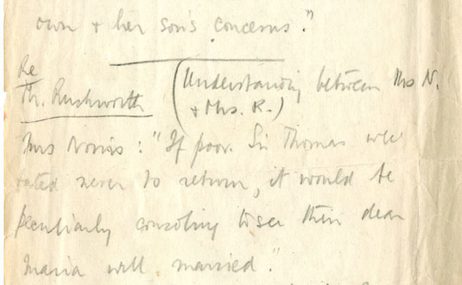 own + her son's concerns."
Re
Mr. Rushworth (Understanding between Mrs N.
+ Mrs. R.)
Mrs Norris: "If poor Sir Thomas were
fated never to return, it would be
peculiarly consoling to see their dear
Maria well married."